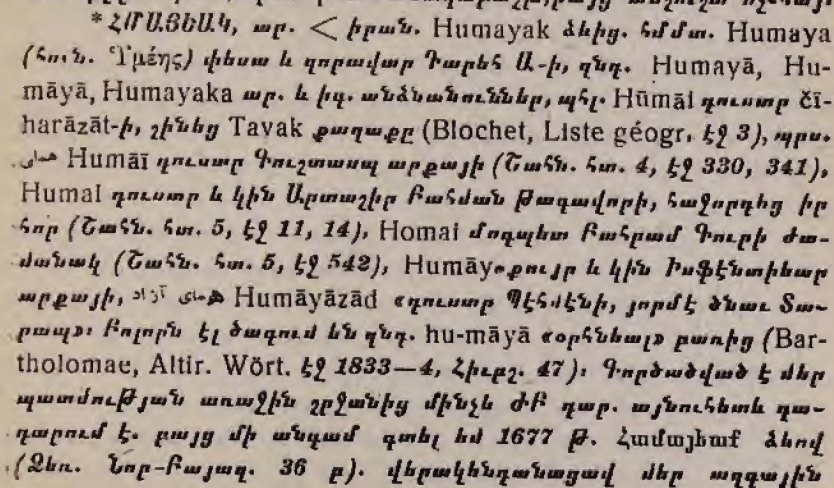 *ՀՄԱՅԵԱԿ, ար. < իրան. Humayak ձևից. հմմտ. Humaya
(հուն. Ὑμέης) փեսա և զորավար Դարեհ Ա-ի, զնդ. Humayā, Hu-
māyā, Humayaka ար. և իգ. անձնանուններ, պհլ. Hūmāi դուստր čī-
harāzāt-ի, շինեց Tavak քաղաքը (Blochet, Liste géogr. էջ 3), պրս.
همای Humāī դուստր Գուշտասպ արքայի (Շահն. հտ. 4, էջ 330, 341),
Humai դուստր և կին Արտաշիր Բահման թագավորի, հաջորդից իր
հոր (Շահն. հտ. 5, էջ 11, 14), Homai մոգպետ Բահրամ Գուրի ժա-
մանակ (Շահն. հտ. 5, էջ 542), Humāy քույր և կին Իսֆէնտիհար
արքայի, همای آزاد Humāyāzād «դուստր Պէհմէնի, յորմէ ծնաւ Տա-
րապ»։ Բոլորն էլ ծագում են զնդ. hu-māyā «օրհնեալ» բառից (Bar-
tholomae, Altir. Wört. էջ 1833—4, Հիւբշ. 47)։ Գործածված է մեր
պատմության առաջին շրջանից մինչև ԺԲ դար. այնուհետև դա-
դարում է. բայց մի անգամ գտել եմ 1677 թ. Համայեաք ձևով
(Ձեռ. Նոր-Բայազ. 36 բ). վերակենդանացավ մեր ազգային